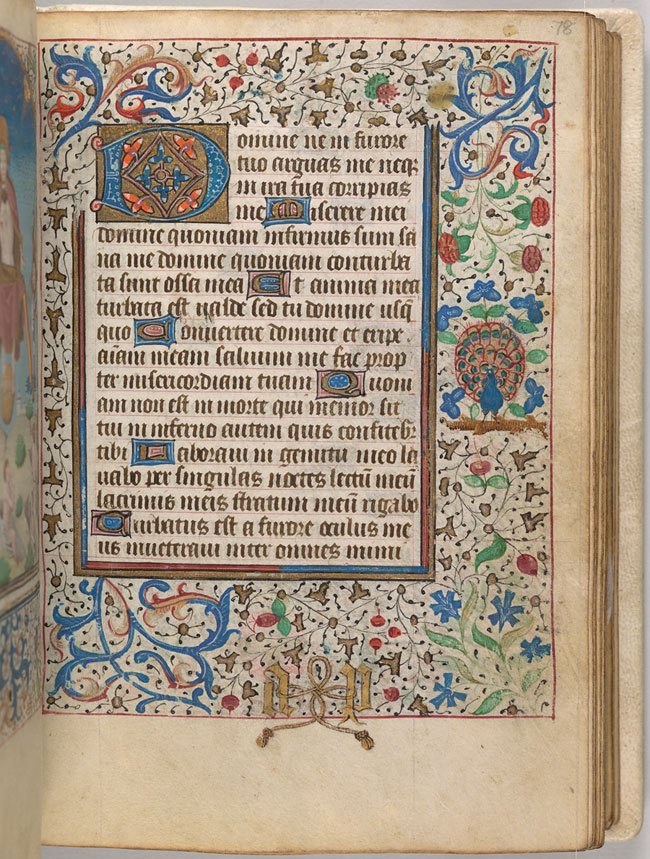 78
Domine ne in furore
tuo arguas me neqz
in ira tua corripias
me Miserere mei
domine quoniam infirmus sum sa
na me domine quoniam conturba
ta sunt ossa mea Et anima mea
turbata est ualde sed tu domine usq
quo Conuertere domine et eripe
aīam meam saluum me fac prop
ter misericordiam tuam Quoni
am non est in morte qui memor sit
tui in inferno autem quis confitebr̄
tibi Laboraui in gemitu meo la
uabo per singulas noctes lectū meū
lacrimis meis stratum meū rigabo
Turbatus est a furore oculus me
us inueteraui inter omnes inimi
a p